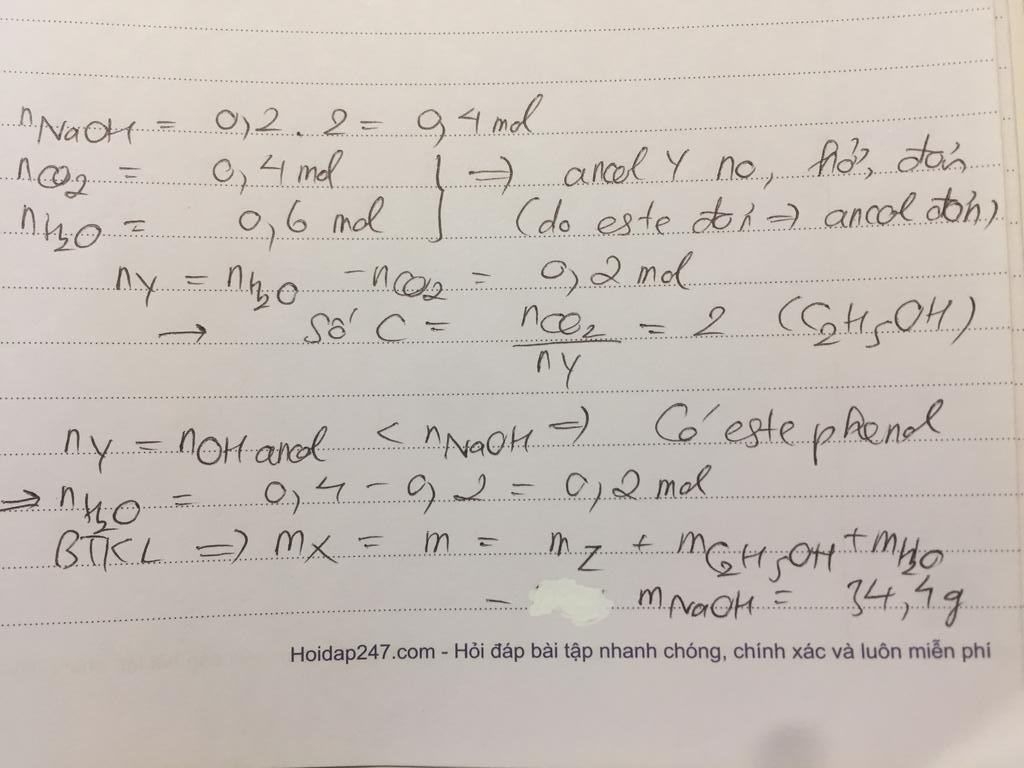 nNaOH = 0,2 . 2 = 0,4 mol
nCO2 = 0,4 mol } => ancol Y no, hở, đơn,
nH2O = 0,6 mol (do este đơn => ancol đơn)
nY = nH2O - nCO2 = 0,2 mol
→ Số C = nCO2/nY = 2 (C2H5OH)
nY = nOH ancol < nNaOH => Có este phenol
=> nH2O = 0,4 - 0,2 = 0,2 mol
BTKL => mX = m = mZ + mC2H5OH + mH2O
- mNaOH = 34,4g
Hoidap247.com - Hỏi đáp bài tập nhanh chóng, chính xác và luôn miễn phí